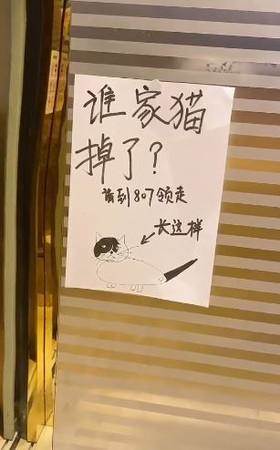 谁家猫
掉了？
请到807领走
长这样